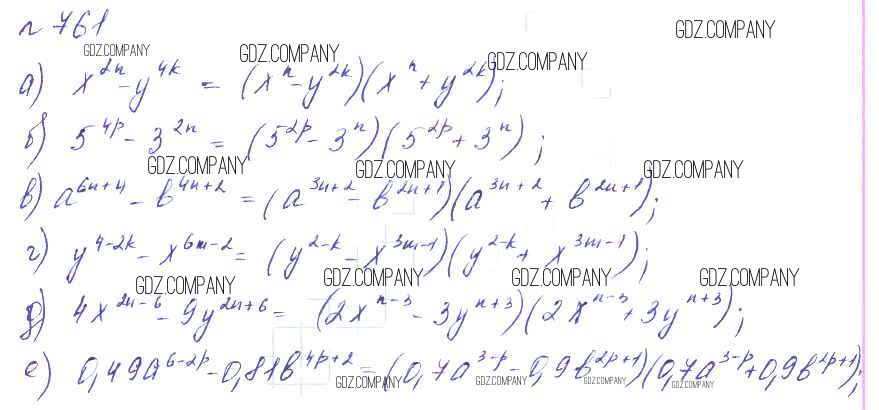 № 761
GDZ.COMPANY
GDZ.COMPANY GDZ.COMPANY GDZ.COMPANY
а) x^{2n} - y^{4k} = (x^n - y^{2k})(x^n + y^{2k});
б) 5^{4p} - 3^{2n} = (5^{2p} - 3^n)(5^{2p} + 3^n);
GDZ.COMPANY GDZ.COMPANY GDZ.COMPANY
в) a^{6n+4} - b^{4n+2} = (a^{3n+2} - b^{2n+1})(a^{3n+2} + b^{2n+1});
г) y^{4-2k} - x^{6m-2} = (y^{2-k} - x^{3m-1})(y^{2-k} + x^{3m-1});
GDZ.COMPANY GDZ.COMPANY GDZ.COMPANY GDZ.COMPANY
д) 4x^{2n-6} - 9y^{2n+6} = (2x^{n-3} - 3y^{n+3})(2x^{n-3} + 3y^{n+3});
е) 0,49a^{6-2p} - 0,81b^{4p+2} = (0,7a^{3-p} - 0,9b^{2p+1})(0,7a^{3-p} + 0,9b^{2p+1});
GDZ.COMPANY GDZ.COMPANY GDZ.COMPANY GDZ.COMPANY